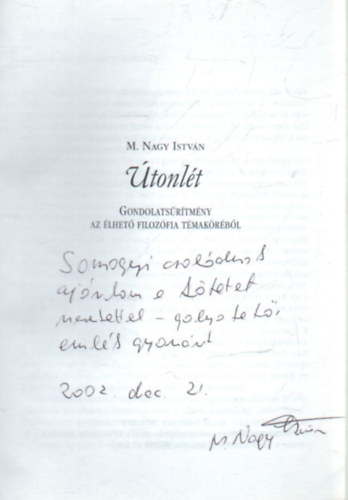 M. NAGY ISTVÁN
Útonlét
GONDOLATSŰRÍTMÉNY
AZ ÉLHETŐ FILOZÓFIA TÉMAKÖRÉBŐL
Somogyi családnak
ajánlom e kötetet
szeretettel –
emlék gyanánt
2002. dec. 21.
M. Nagy István